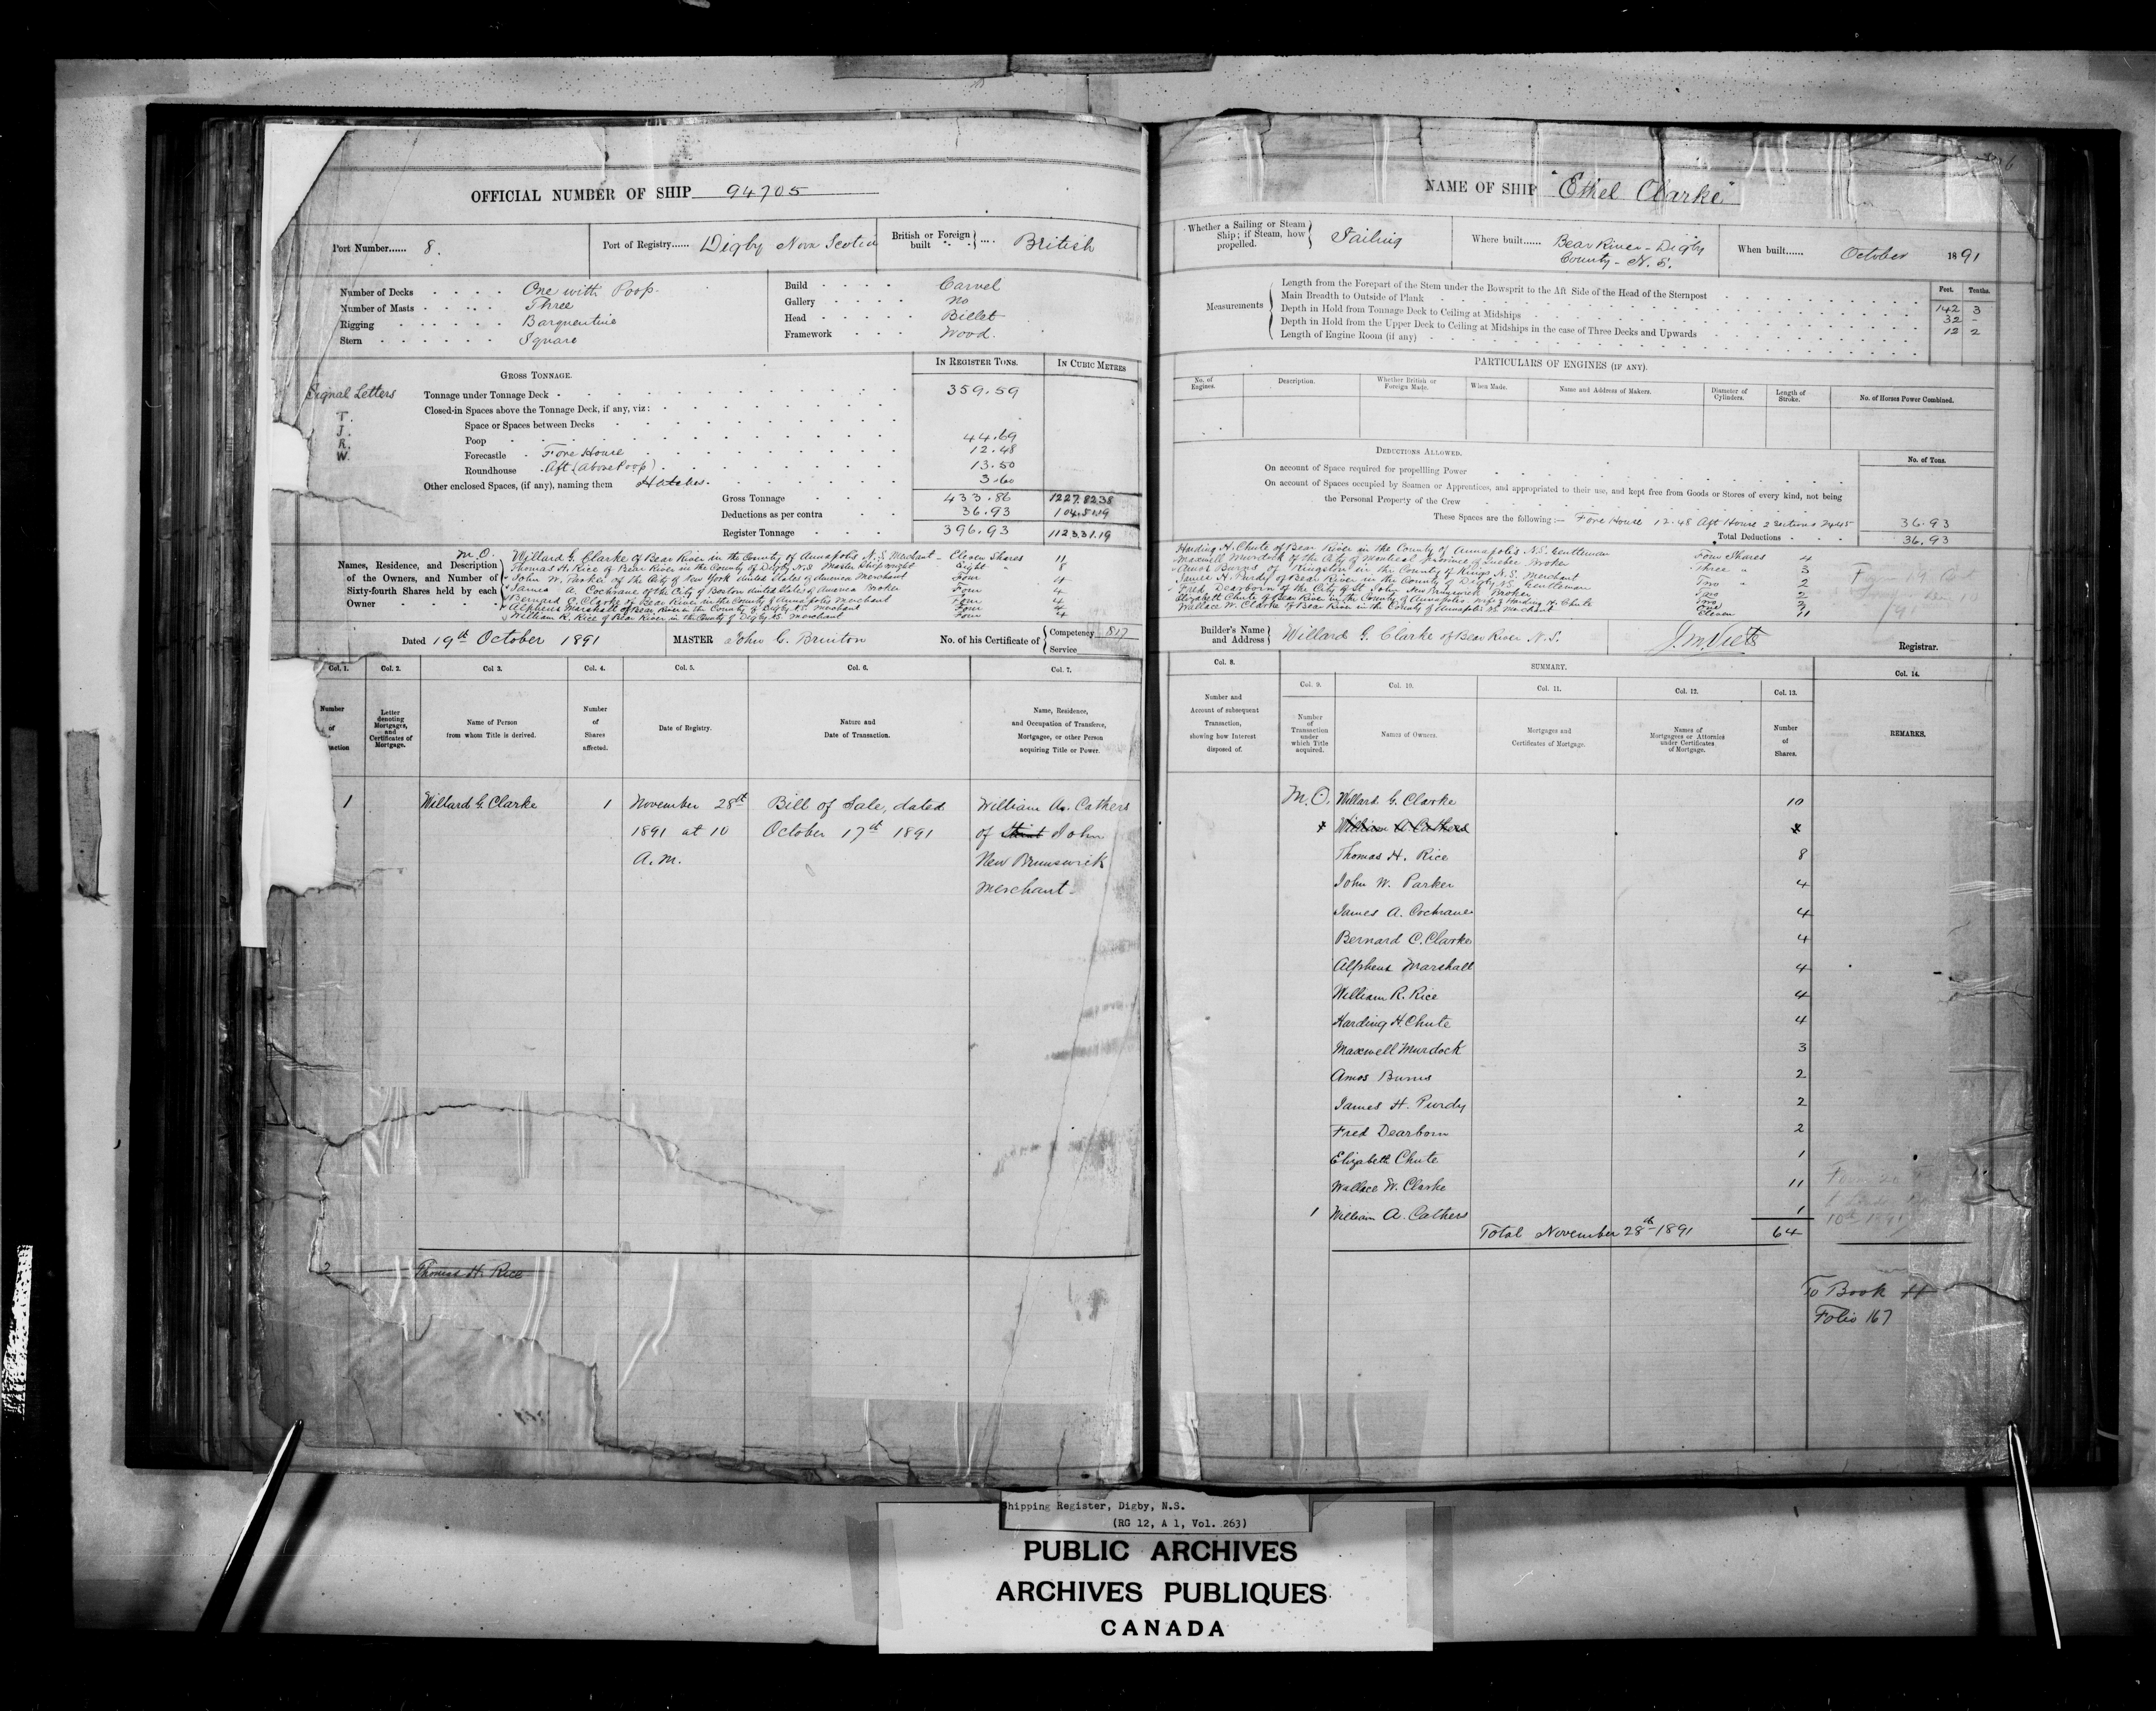 OFFICIAL NUMBER OF SHIP 94705
Port Number...... 8.
Port of Registry...... Digby Nova Scotia
British or Foreign built .... British
Number of Decks One with Poop.
Number of Masts Three
Rigging Barquentine
Stern Square
Build Carvel
Gallery No
Head Billet
Framework Wood.
GROSS TONNAGE.
IN REGISTER TONS.
IN CUBIC METRES
Signal Letters
T.
J.
R.
W.
Tonnage under Tonnage Deck 359.59
Closed-in Spaces above the Tonnage Deck, if any, viz:
Space or Spaces between Decks
Poop 44.69
Forecastle Fore House 12.48
Roundhouse Aft (Above Poop) 13.50
Other enclosed Spaces, (if any), naming them Hatches. 3.60
Gross Tonnage 433.86 1227.8238
Deductions as per contra 36.93 104.5119
Register Tonnage 396.93 1123.3119
Names, Residence, and Description of the Owners, and Number of Sixty-fourth Shares held by each Owner
M.O. Willard G. Clarke of Bear River in the County of Annapolis N.S. Merchant - Eleven Shares 11
Thomas H. Rice of Bear River in the County of Digby N.S Master Shipwright - Eight " 8
John W. Parker of the City of New York United States of America Merchant Four 4
James A. Cochrane of the City of Boston United States of America Broker Four 4
Bernard C. Clarke of Bear River in the County of Annapolis Merchant Four 4
Alpheus Marshall of Bear River in the County of Digby N.S. Merchant Four 4
William R. Rice of Bear River in the County of Digby N.S. Merchant Four 4
Dated 19th October 1891
MASTER John C. Brinton
No. of his Certificate of Competency 817
Service
Col. 1.
Col. 2.
Col 3.
Col. 4.
Col. 5.
Col. 6.
Col. 7.
Number of
Letter denoting Mortgages, and Certificates of Mortgage.
Name of Person from whom Title is derived.
Number of Shares affected.
Date of Registry.
Nature and Date of Transaction.
Name, Residence, and Occupation of Transferee, Mortgagee, or other Person acquiring Title or Power.
1 Willard G. Clarke 1 November 28th Bill of Sale, dated William A. Cathers
1891 at 10 October 17th 1891 of Saint John
A.M. New Brunswick
Merchant
2 Thomas H. Rice
NAME OF SHIP "Ethel Clarke"
Whether a Sailing or Steam Ship; if Steam, how propelled. Sailing
Where built...... Bear River - Digby
County - N.S.
When built...... October 1891
Measurements
Feet. Tenths.
Length from the Forepart of the Stem under the Bowsprit to the Aft Side of the Head of the Sternpost 142 3
Main Breadth to Outside of Plank 32 -
Depth in Hold from Tonnage Deck to Ceiling at Midships 12 2
Depth in Hold from the Upper Deck to Ceiling at Midships in the case of Three Decks and Upwards
Length of Engine Room (if any)
PARTICULARS OF ENGINES (IF ANY).
No. of Engines.
Description.
Whether British or Foreign Made.
When Made.
Name and Address of Makers.
Diameter of Cylinders.
Length of Stroke.
No. of Horses Power Combined.
DEDUCTIONS ALLOWED.
No. of Tons.
On account of Space required for propelling Power
On account of Spaces occupied by Seamen or Apprentices, and appropriated to their use, and kept free from Goods or Stores of every kind, not being
the Personal Property of the Crew
These Spaces are the following:— Fore House 12.48 Aft House 2 Sections 24.45 36.93
Total Deductions 36.93
Harding H. Chute of Bear River in the County of Annapolis N.S. Gentleman Four Shares 4
Maxwell Murdock of the City of Montreal Province of Quebec Broker Three " 3
Amos Burns of Kingston in the County of Kings N.S. Merchant Two " 2
James H. Purdy of Bear River in the County of Digby N.S. Gentleman Two 2
Fred Dearborn of the City of St. John New Brunswick Broker Two 2
Elizabeth Chute of Bear River in the County of Annapolis Wife of Harding H. Chute One 1
Wallace W. Clarke of Bear River in the County of Annapolis N.S. Merchant Eleven 11
Builder's Name and Address Willard G. Clarke of Bear River N.S.
J. M. Viets Registrar.
Col. 8.
SUMMARY.
Col. 14.
Col. 9.
Col. 10.
Col. 11.
Col. 12.
Col. 13.
Number and Account of subsequent Transaction, showing how Interest disposed of.
Number of Transaction under which Title acquired.
Names of Owners.
Mortgages and Certificates of Mortgage.
Names of Mortgagees or Attornies under Certificates of Mortgage.
Number of Shares.
REMARKS.
M.O. Willard G. Clarke 10
William A Cathers
Thomas H. Rice 8
John W. Parker 4
James A. Cochrane 4
Bernard C. Clarke 4
Alpheus Marshall 4
William R. Rice 4
Harding H. Chute 4
Maxwell Murdock 3
Amos Burns 2
James H. Purdy 2
Fred Dearborn 2
Elizabeth Chute 1
Wallace W. Clarke 11
1 William A. Cathers 1
Total November 28th 1891 64
To Book H
Folio 167
Shipping Register, Digby, N.S.
(RG 12, A 1, Vol. 263)
PUBLIC ARCHIVES
ARCHIVES PUBLIQUES
CANADA